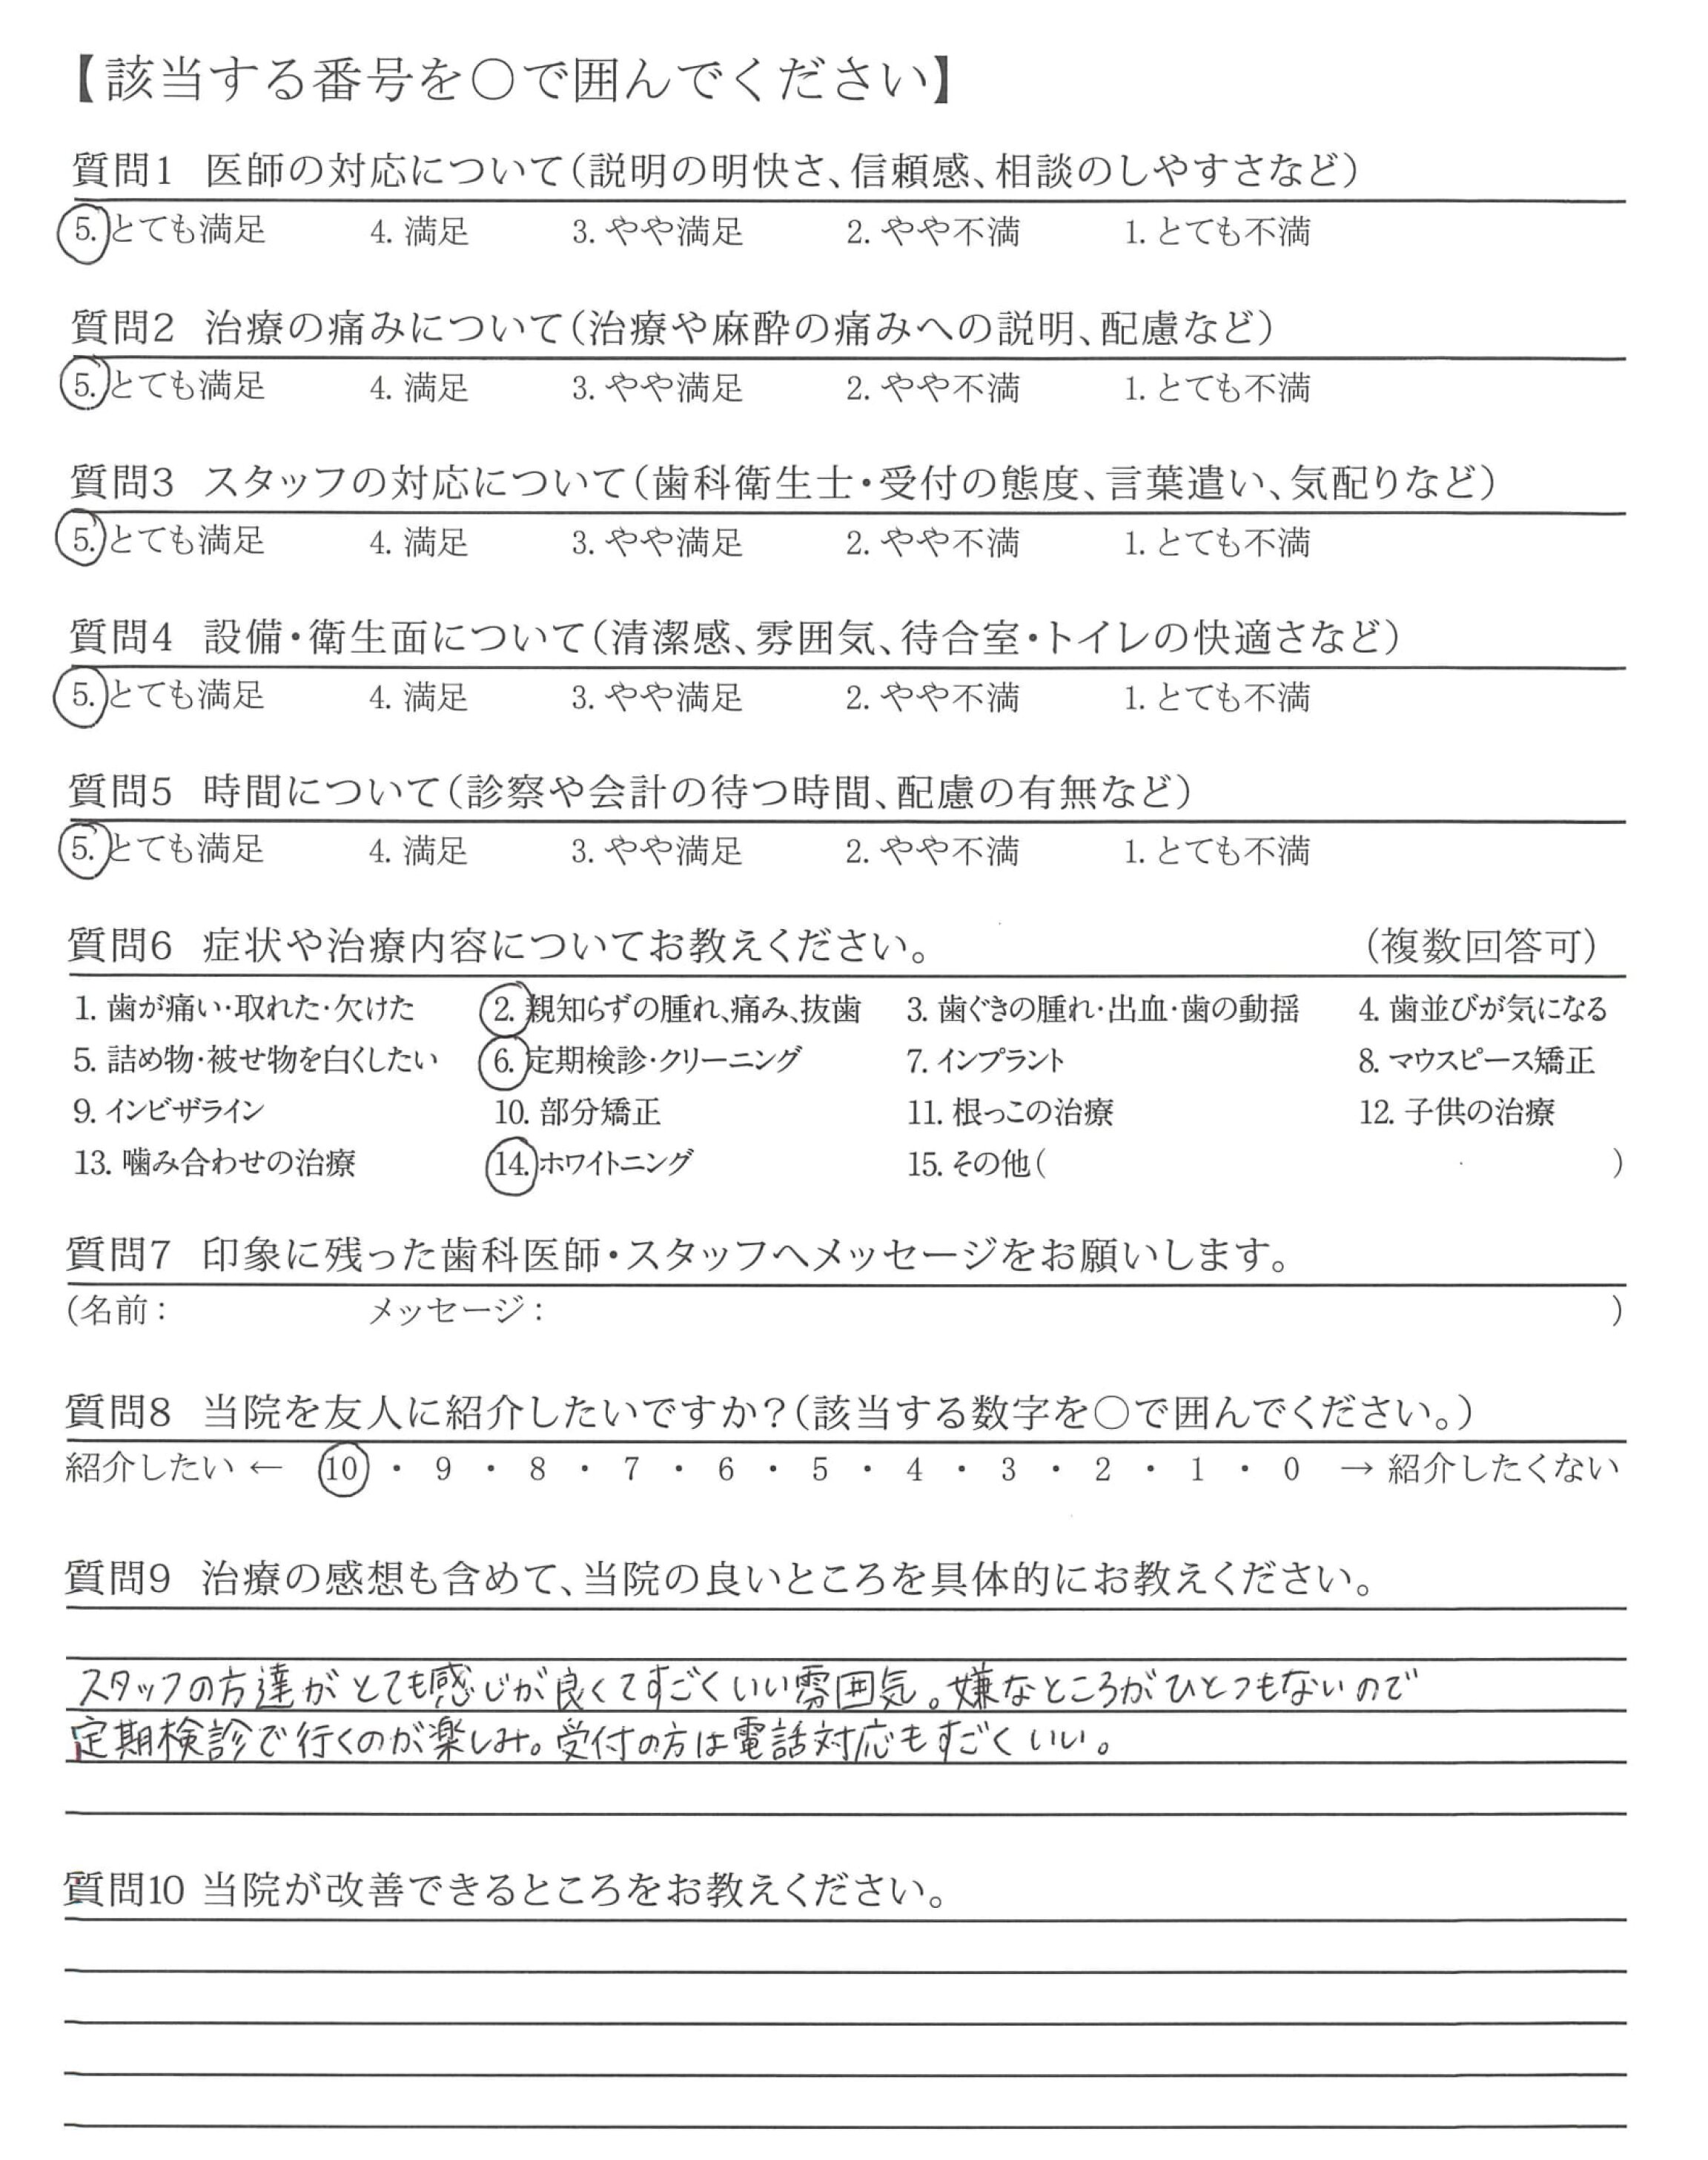 【該当する番号を○で囲んでください】
質問1 医師の対応について(説明の明快さ、信頼感、相談のしやすさなど)
5. とても満足 4. 満足 3. やや満足 2. やや不満 1. とても不満
質問2 治療の痛みについて(治療や麻酔の痛みへの説明、配慮など)
5. とても満足 4. 満足 3. やや満足 2. やや不満 1. とても不満
質問3 スタッフの対応について(歯科衛生士・受付の態度、言葉遣い、気配りなど)
5. とても満足 4. 満足 3. やや満足 2. やや不満 1. とても不満
質問4 設備・衛生面について(清潔感、雰囲気、待合室・トイレの快適さなど)
5. とても満足 4. 満足 3. やや満足 2. やや不満 1. とても不満
質問5 時間について(診察や会計の待つ時間、配慮の有無など)
5. とても満足 4. 満足 3. やや満足 2. やや不満 1. とても不満
質問6 症状や治療内容についてお教えください。 (複数回答可)
1. 歯が痛い・取れた・欠けた 2. 親知らずの腫れ、痛み、抜歯 3. 歯ぐきの腫れ・出血・歯の動揺 4. 歯並びが気になる
5. 詰め物・被せ物を白くしたい 6. 定期検診・クリーニング 7. インプラント 8. マウスピース矯正
9. インビザライン 10. 部分矯正 11. 根っこの治療 12. 子供の治療
13. 噛み合わせの治療 14. ホワイトニング 15. その他( )
質問7 印象に残った歯科医師・スタッフへメッセージをお願いします。
(名前: メッセージ: )
質問8 当院を友人に紹介したいですか?(該当する数字を○で囲んでください。)
紹介したい ← 10 ・ 9 ・ 8 ・ 7 ・ 6 ・ 5 ・ 4 ・ 3 ・ 2 ・ 1 ・ 0 → 紹介したくない
質問9 治療の感想も含めて、当院の良いところを具体的にお教えください。
スタッフの方達がとても感じが良くてすごくいい雰囲気。嫌なところがひとつもないので
定期検診で行くのが楽しみ。受付の方は電話対応もすごくいい。
質問10 当院が改善できるところをお教えください。